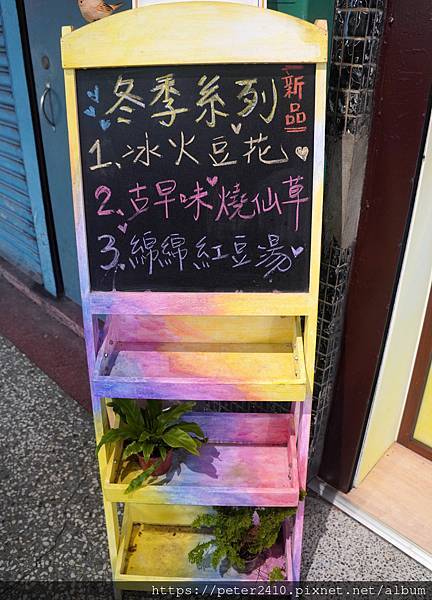 冬季系列 新品
1.冰火豆花
2.古早味燒仙草
3.綿綿紅豆湯
https://peter2410.pixnet.net/album